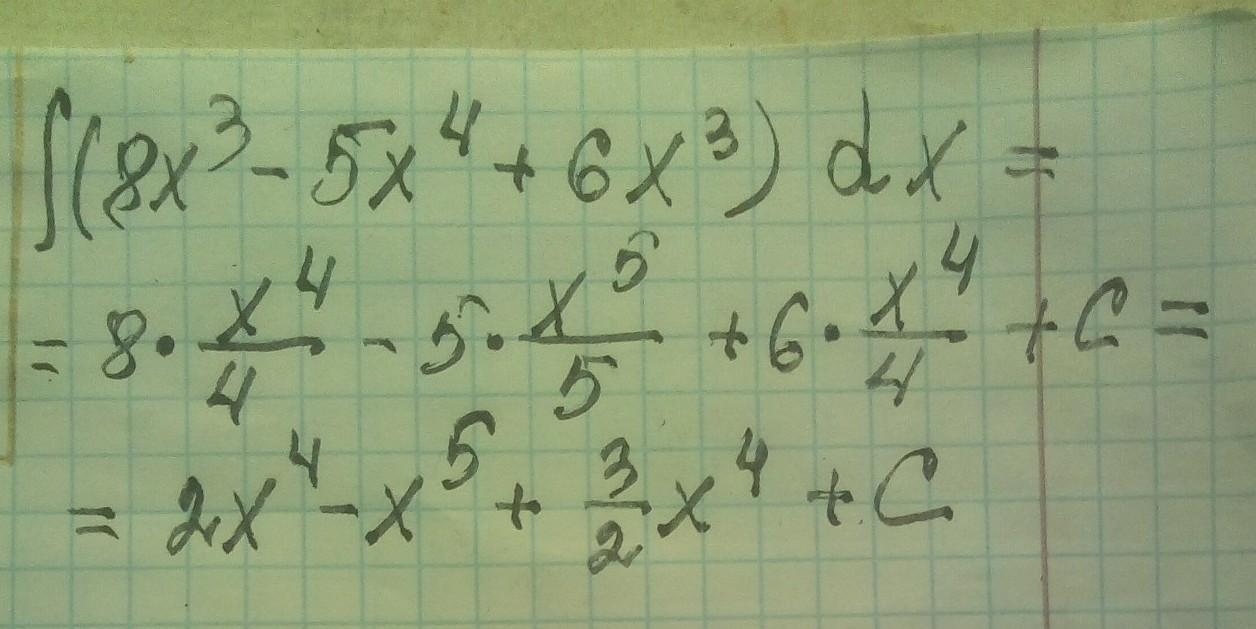 ∫(8x³ - 5x⁴ + 6x³) dx =
= 8 · x⁴/4 - 5 · x⁵/5 + 6 · x⁴/4 + C =
= 2x⁴ - x⁵ + 3/2 x⁴ + C